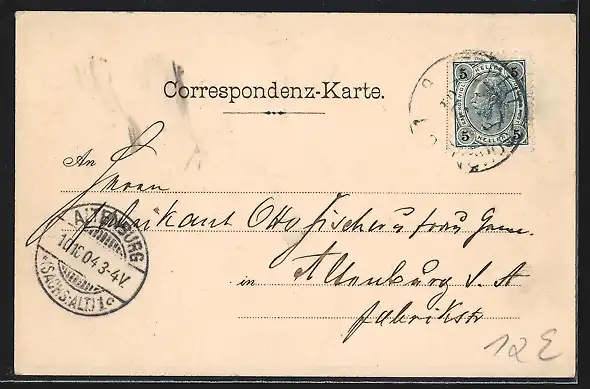 Correspondenz-Karte.
5 HELLER 5
5 HELLER 5
An Herrn
Fabrikant Otto Fischer u. Frau Gem.
in Altenburg S. A
Fabrikstr
ALTENBURG
10.10.04.3-4V.
*(SACHS:ALT.)1c
12 E